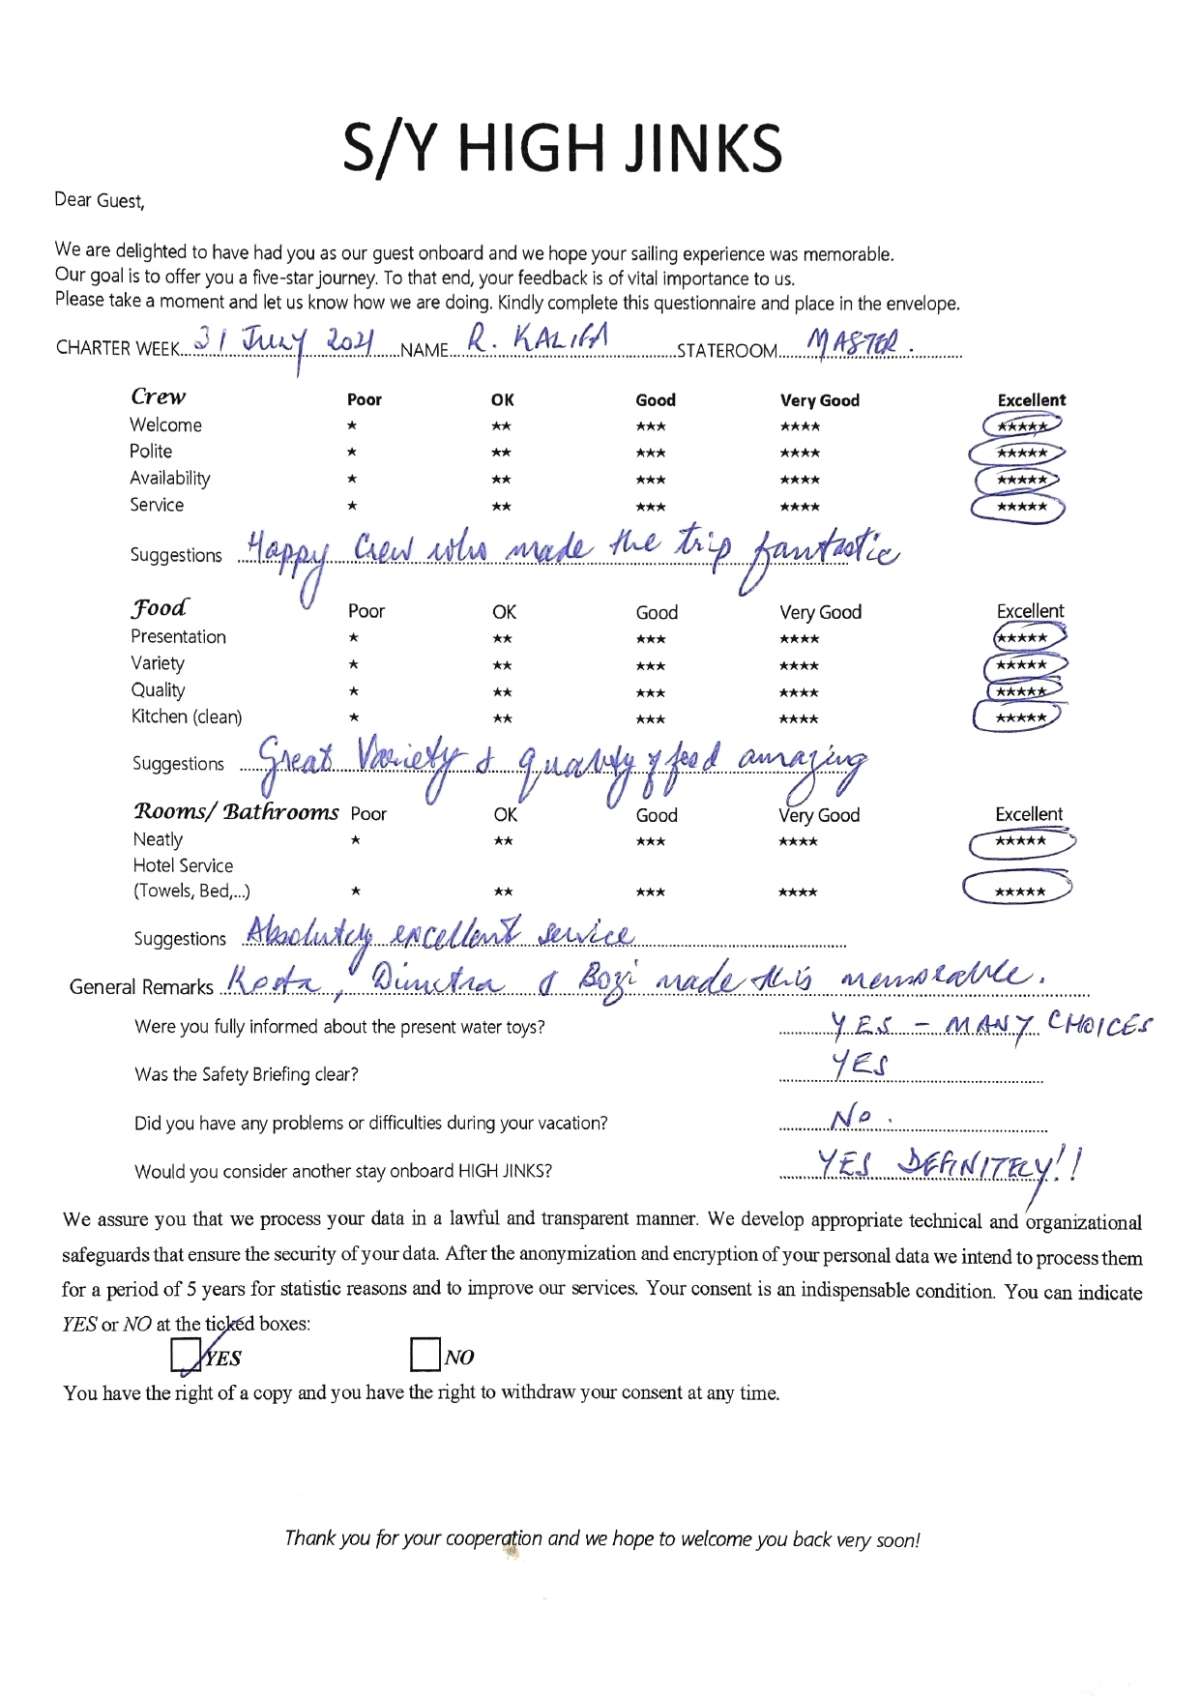 S/Y HIGH JINKS
Dear Guest,
We are delighted to have had you as our guest onboard and we hope your sailing experience was memorable.
Our goal is to offer you a five-star journey. To that end, your feedback is of vital importance to us.
Please take a moment and let us know how we are doing. Kindly complete this questionnaire and place in the envelope.
CHARTER WEEK 31 July 2021 NAME R. KALIFA STATEROOM MASTER.
Crew Poor OK Good Very Good Excellent
Welcome ★ ★★ ★★★ ★★★★ ★★★★★
Polite ★ ★★ ★★★ ★★★★ ★★★★★
Availability ★ ★★ ★★★ ★★★★ ★★★★★
Service ★ ★★ ★★★ ★★★★ ★★★★★
Suggestions Happy Crew who made the trip fantastic
Food Poor OK Good Very Good Excellent
Presentation ★ ★★ ★★★ ★★★★ ★★★★★
Variety ★ ★★ ★★★ ★★★★ ★★★★★
Quality ★ ★★ ★★★ ★★★★ ★★★★★
Kitchen (clean) ★ ★★ ★★★ ★★★★ ★★★★★
Suggestions Great Variety & quality of food amazing
Rooms/ Bathrooms Poor OK Good Very Good Excellent
Neatly ★ ★★ ★★★ ★★★★ ★★★★★
Hotel Service
(Towels, Bed,...) ★ ★★ ★★★ ★★★★ ★★★★★
Suggestions Absolutely excellent service
General Remarks Kosta, Dimitra & Bozi made this memorable.
Were you fully informed about the present water toys? YES - MANY CHOICES
Was the Safety Briefing clear? YES
Did you have any problems or difficulties during your vacation? No.
Would you consider another stay onboard HIGH JINKS? YES DEFINITELY!!
We assure you that we process your data in a lawful and transparent manner. We develop appropriate technical and organizational
safeguards that ensure the security of your data. After the anonymization and encryption of your personal data we intend to process them
for a period of 5 years for statistic reasons and to improve our services. Your consent is an indispensable condition. You can indicate
YES or NO at the ticked boxes:
YES NO
You have the right of a copy and you have the right to withdraw your consent at any time.
Thank you for your cooperation and we hope to welcome you back very soon!